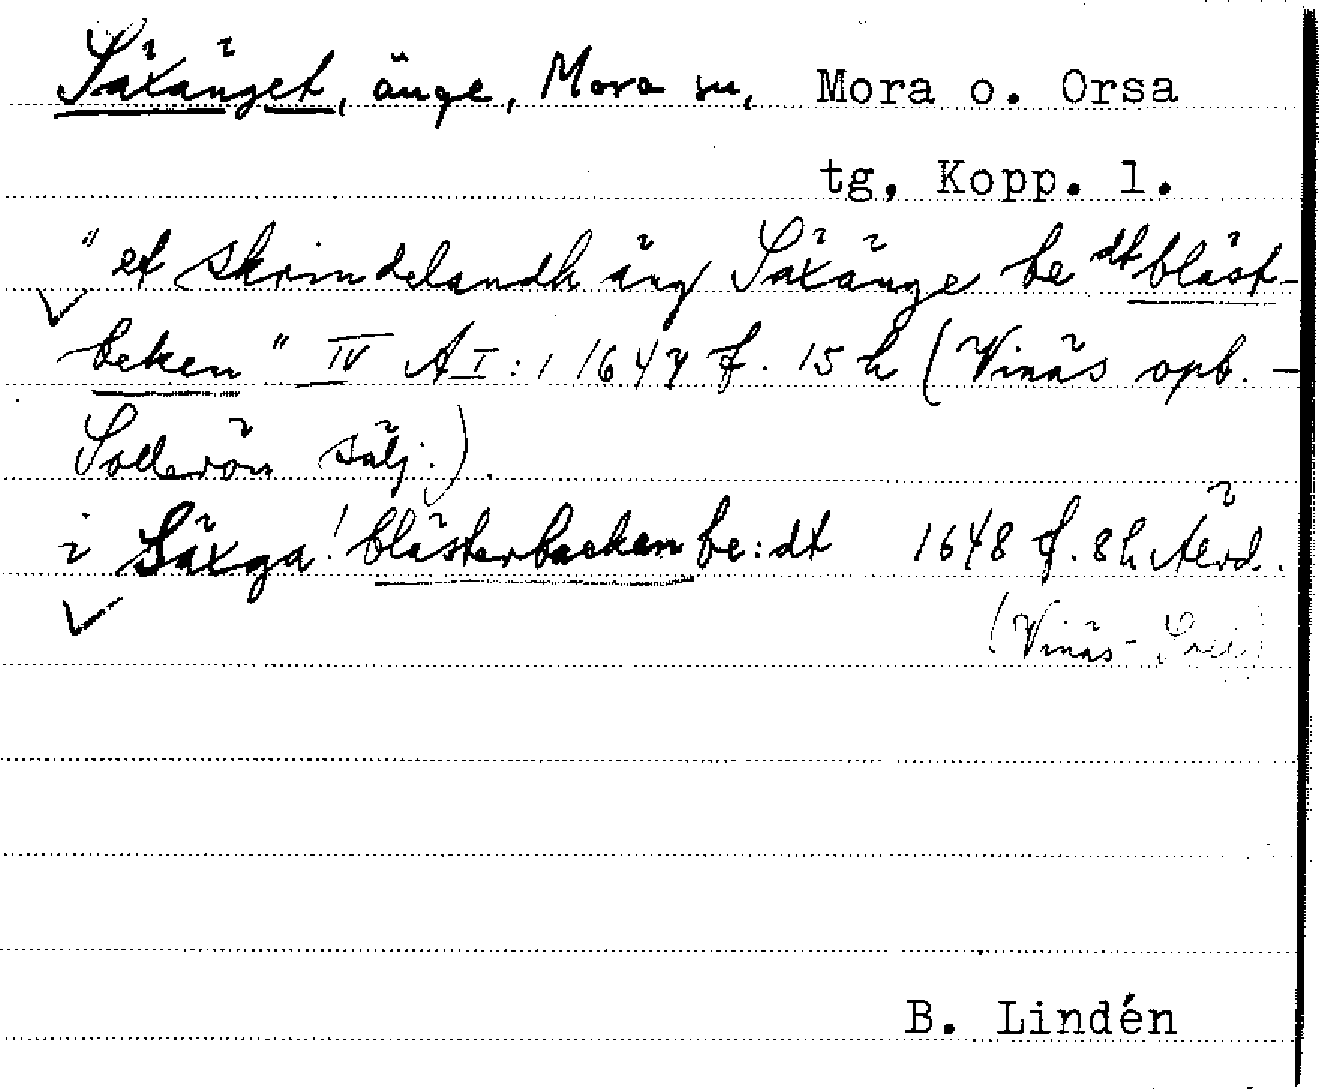 Säxänget, änge, Mora sn, Mora o. Orsa
tg, Kopp. l.
"et skrindelandh äng Säxänge be dt bläst-
beken" IV A I:1 1647 f. 15 h (Vinäs opb. -
Sollerön sälj.).
i Säxga! blästerbacken be:dt 1648 f. 8 h
(Vinäs-
B. Lindén